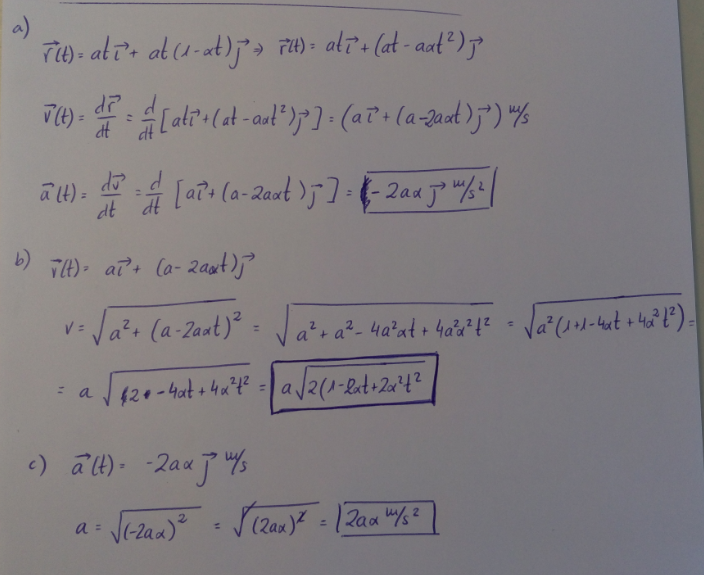 a)
r⃗(t) = at i⃗ + at(1-αt) j⃗ ⇒ r⃗(t) = at i⃗ + (at - aαt²) j⃗
v⃗(t) = dr⃗/dt = d/dt [at i⃗ + (at - aαt²) j⃗] = (a i⃗ + (a - 2aαt) j⃗) m/s
a⃗(t) = dv⃗/dt = d/dt [a i⃗ + (a - 2aαt) j⃗] = -2aα j⃗ m/s²
b) v⃗(t) = a i⃗ + (a - 2aαt) j⃗
v = √(a² + (a - 2aαt)²) = √(a² + a² - 4a²αt + 4a²α²t²) = √(a²(1+1-4αt + 4α²t²)) =
= a √(2 - 4αt + 4α²t²) = a √(2(1 - 2αt + 2α²t²
c) a⃗(t) = -2aα j⃗ m/s
a = √((-2aα)²) = √((2aα)²) = 2aα m/s²